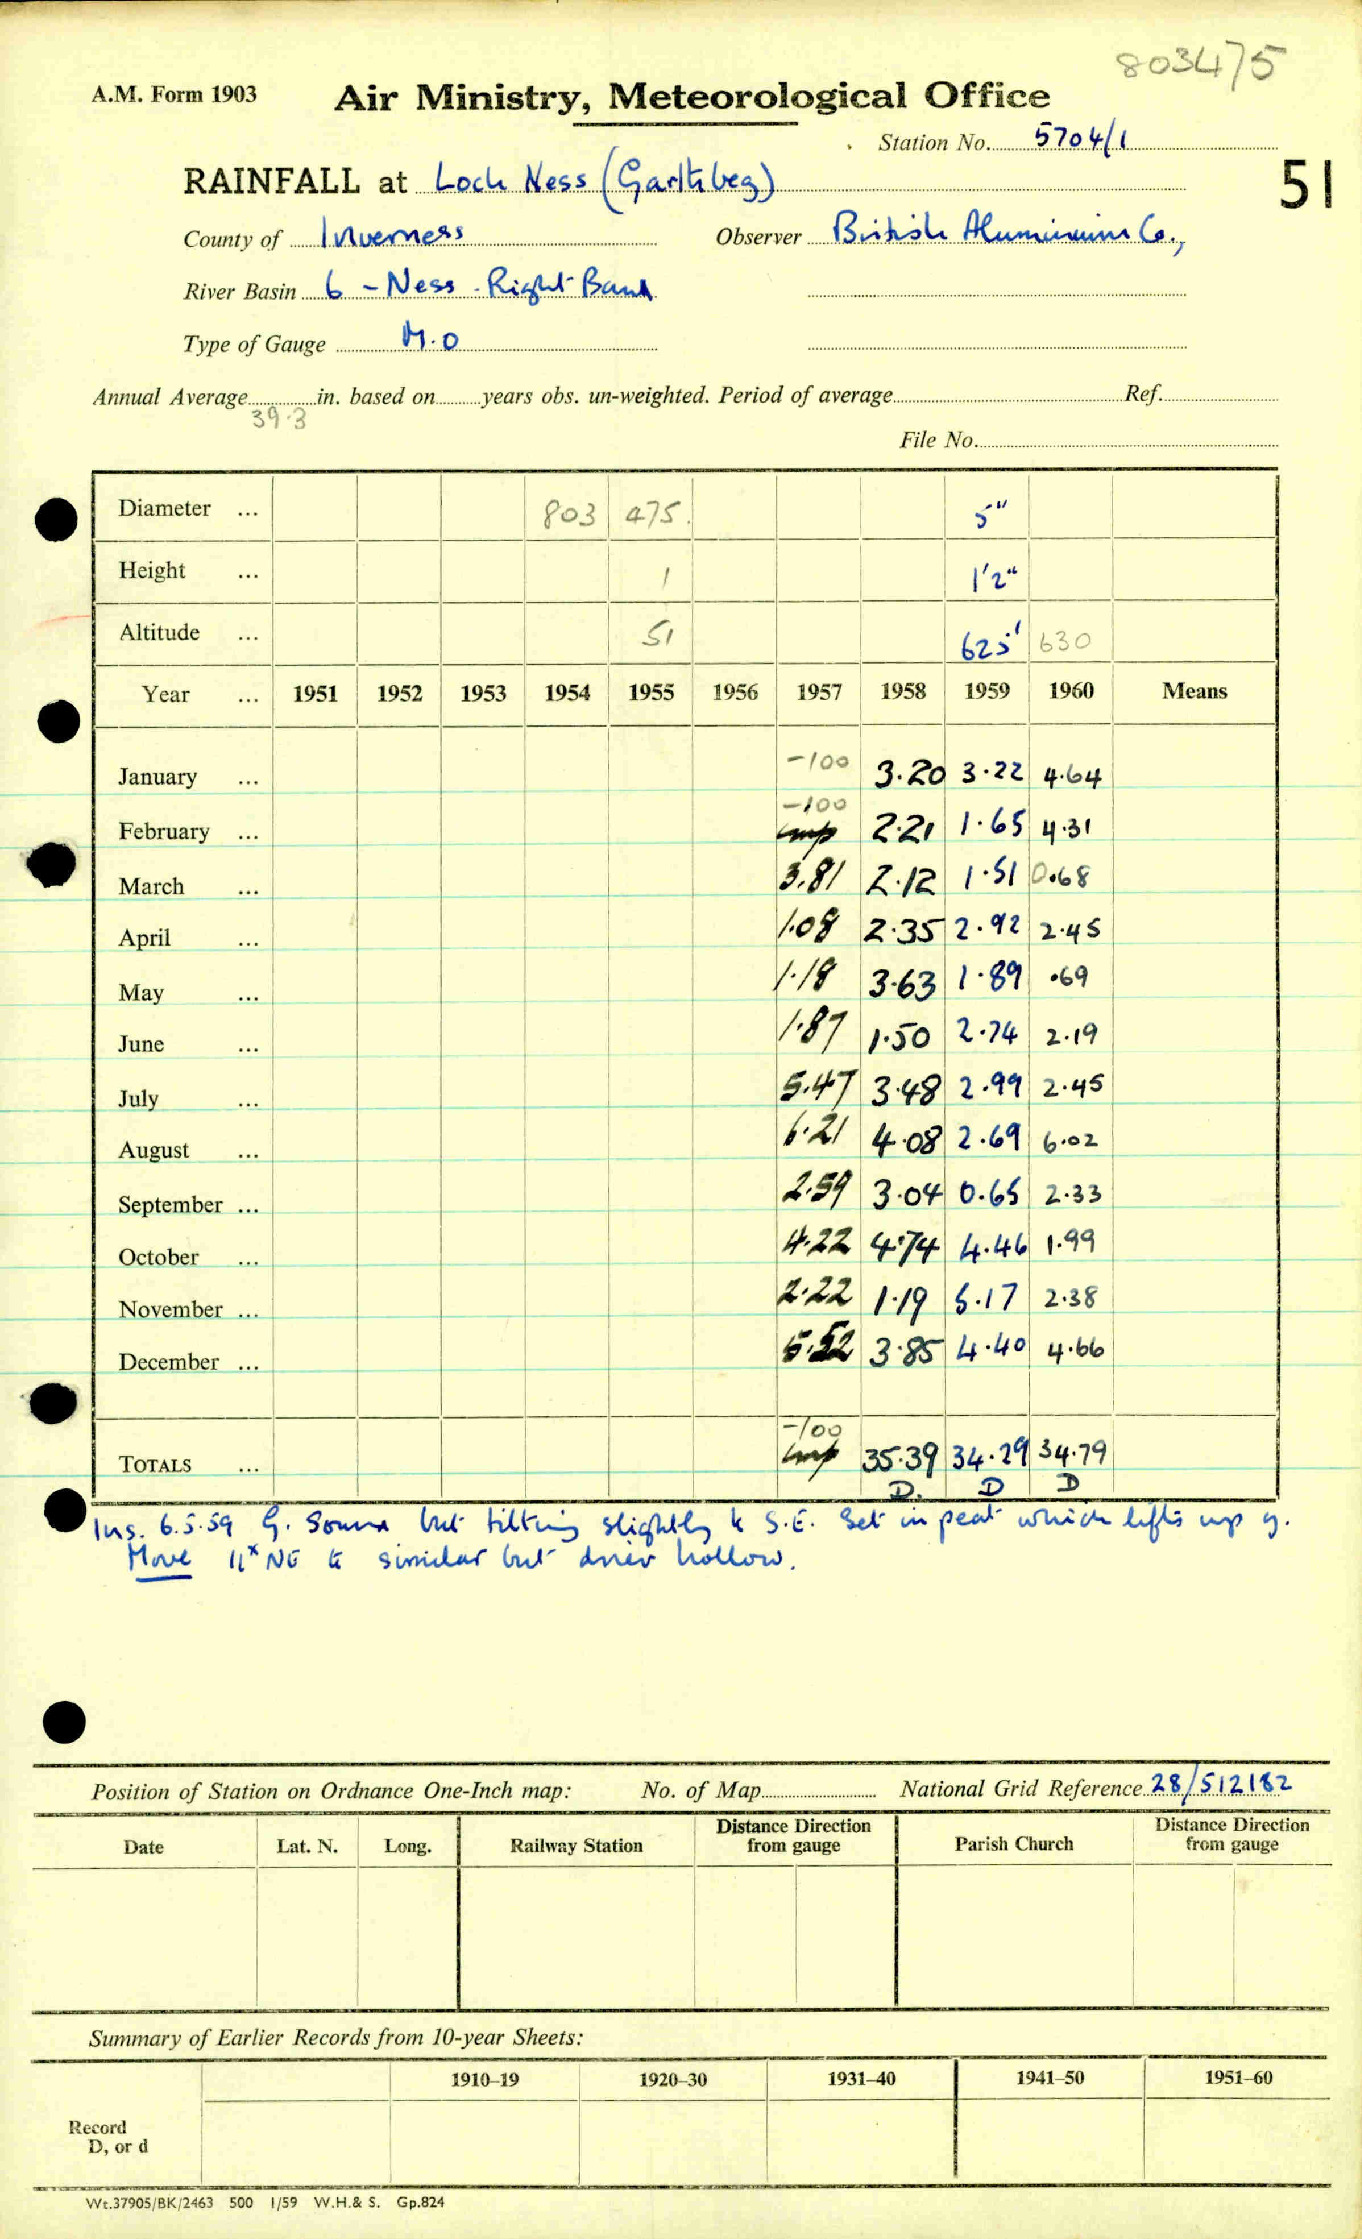 803475
A.M. Form 1903 Air Ministry, Meteorological Office
Station No. 5704/1
RAINFALL at Loch Ness (Garthbeg) 51
County of Inverness Observer British Aluminium Co.,
River Basin 6 - Ness - Right Bank
Type of Gauge M.O
Annual Average in. based on years obs. un-weighted. Period of average Ref.
39.3
File No.
Diameter ... 803 475. 5"
Height ... 1 1'2"
Altitude ... 51 625' 630
Year ... 1951 1952 1953 1954 1955 1956 1957 1958 1959 1960 Means
January ... -100 3.20 3.22 4.64
-100
February ... imp 2.21 1.65 4.31
March ... 3.81 2.12 1.51 0.68
April ... 1.08 2.35 2.92 2.45
May ... 1.18 3.63 1.89 .69
June ... 1.87 1.50 2.74 2.19
July ... 5.47 3.48 2.99 2.45
August ... 6.21 4.08 2.69 6.02
September ... 2.59 3.04 0.65 2.33
October ... 4.22 4.74 4.46 1.99
November ... 2.22 1.19 5.17 2.38
December ... 5.52 3.85 4.40 4.66
-100
TOTALS ... imp 35.39 34.29 34.79
D. D D
Ins. 6.5.59 G. Sound but tilting slightly to S.E. Set in peat which lifts up g.
Move 11x NE to similar but drier hollow.
Position of Station on Ordnance One-Inch map: No. of Map National Grid Reference 28/512182
Date Lat. N. Long. Railway Station Distance Direction from gauge Parish Church Distance Direction from gauge
Summary of Earlier Records from 10-year Sheets:
1910–19 1920–30 1931–40 1941–50 1951–60
Record
D, or d
Wt.37905/BK/2463 500 1/59 W.H.& S. Gp.824